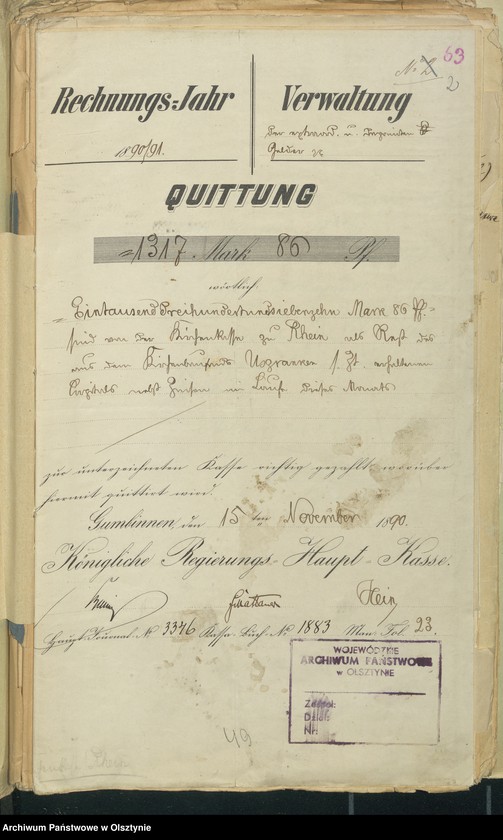 63
No 2
2
Rechnungs-Jahr
Verwaltung
1890/91.
der extraord. u. Deponirten
Gelder
QUITTUNG
=1317. Mark 86 Pf.
wörtlich:
Eintausend Dreihundertundsiebenzehn Mark 86 Pf.
sind von der Kirchenkasse zu Rhein als Rest des
aus dem Kirchenbaufonds s. Zt. erhaltenen
Capitals nebst Zinsen im Laufe dieses Monats
zur unterzeichneten Kasse richtig gezahlt, worüber
hiermit quittirt wird.
Gumbinnen, den 15 ten November 1890.
Königliche Regierungs-Haupt-Kasse.
Hein
Haupt-Journal No 3376 Kassa-Buch No 1883 Man. Fol. 23.
WOJEWÓDZKIE
ARCHIWUM PAŃSTWOWE
w OLSZTYNIE
Zespół:
Dział:
Nr:
49
Rhein
Archiwum Państwowe w Olsztynie